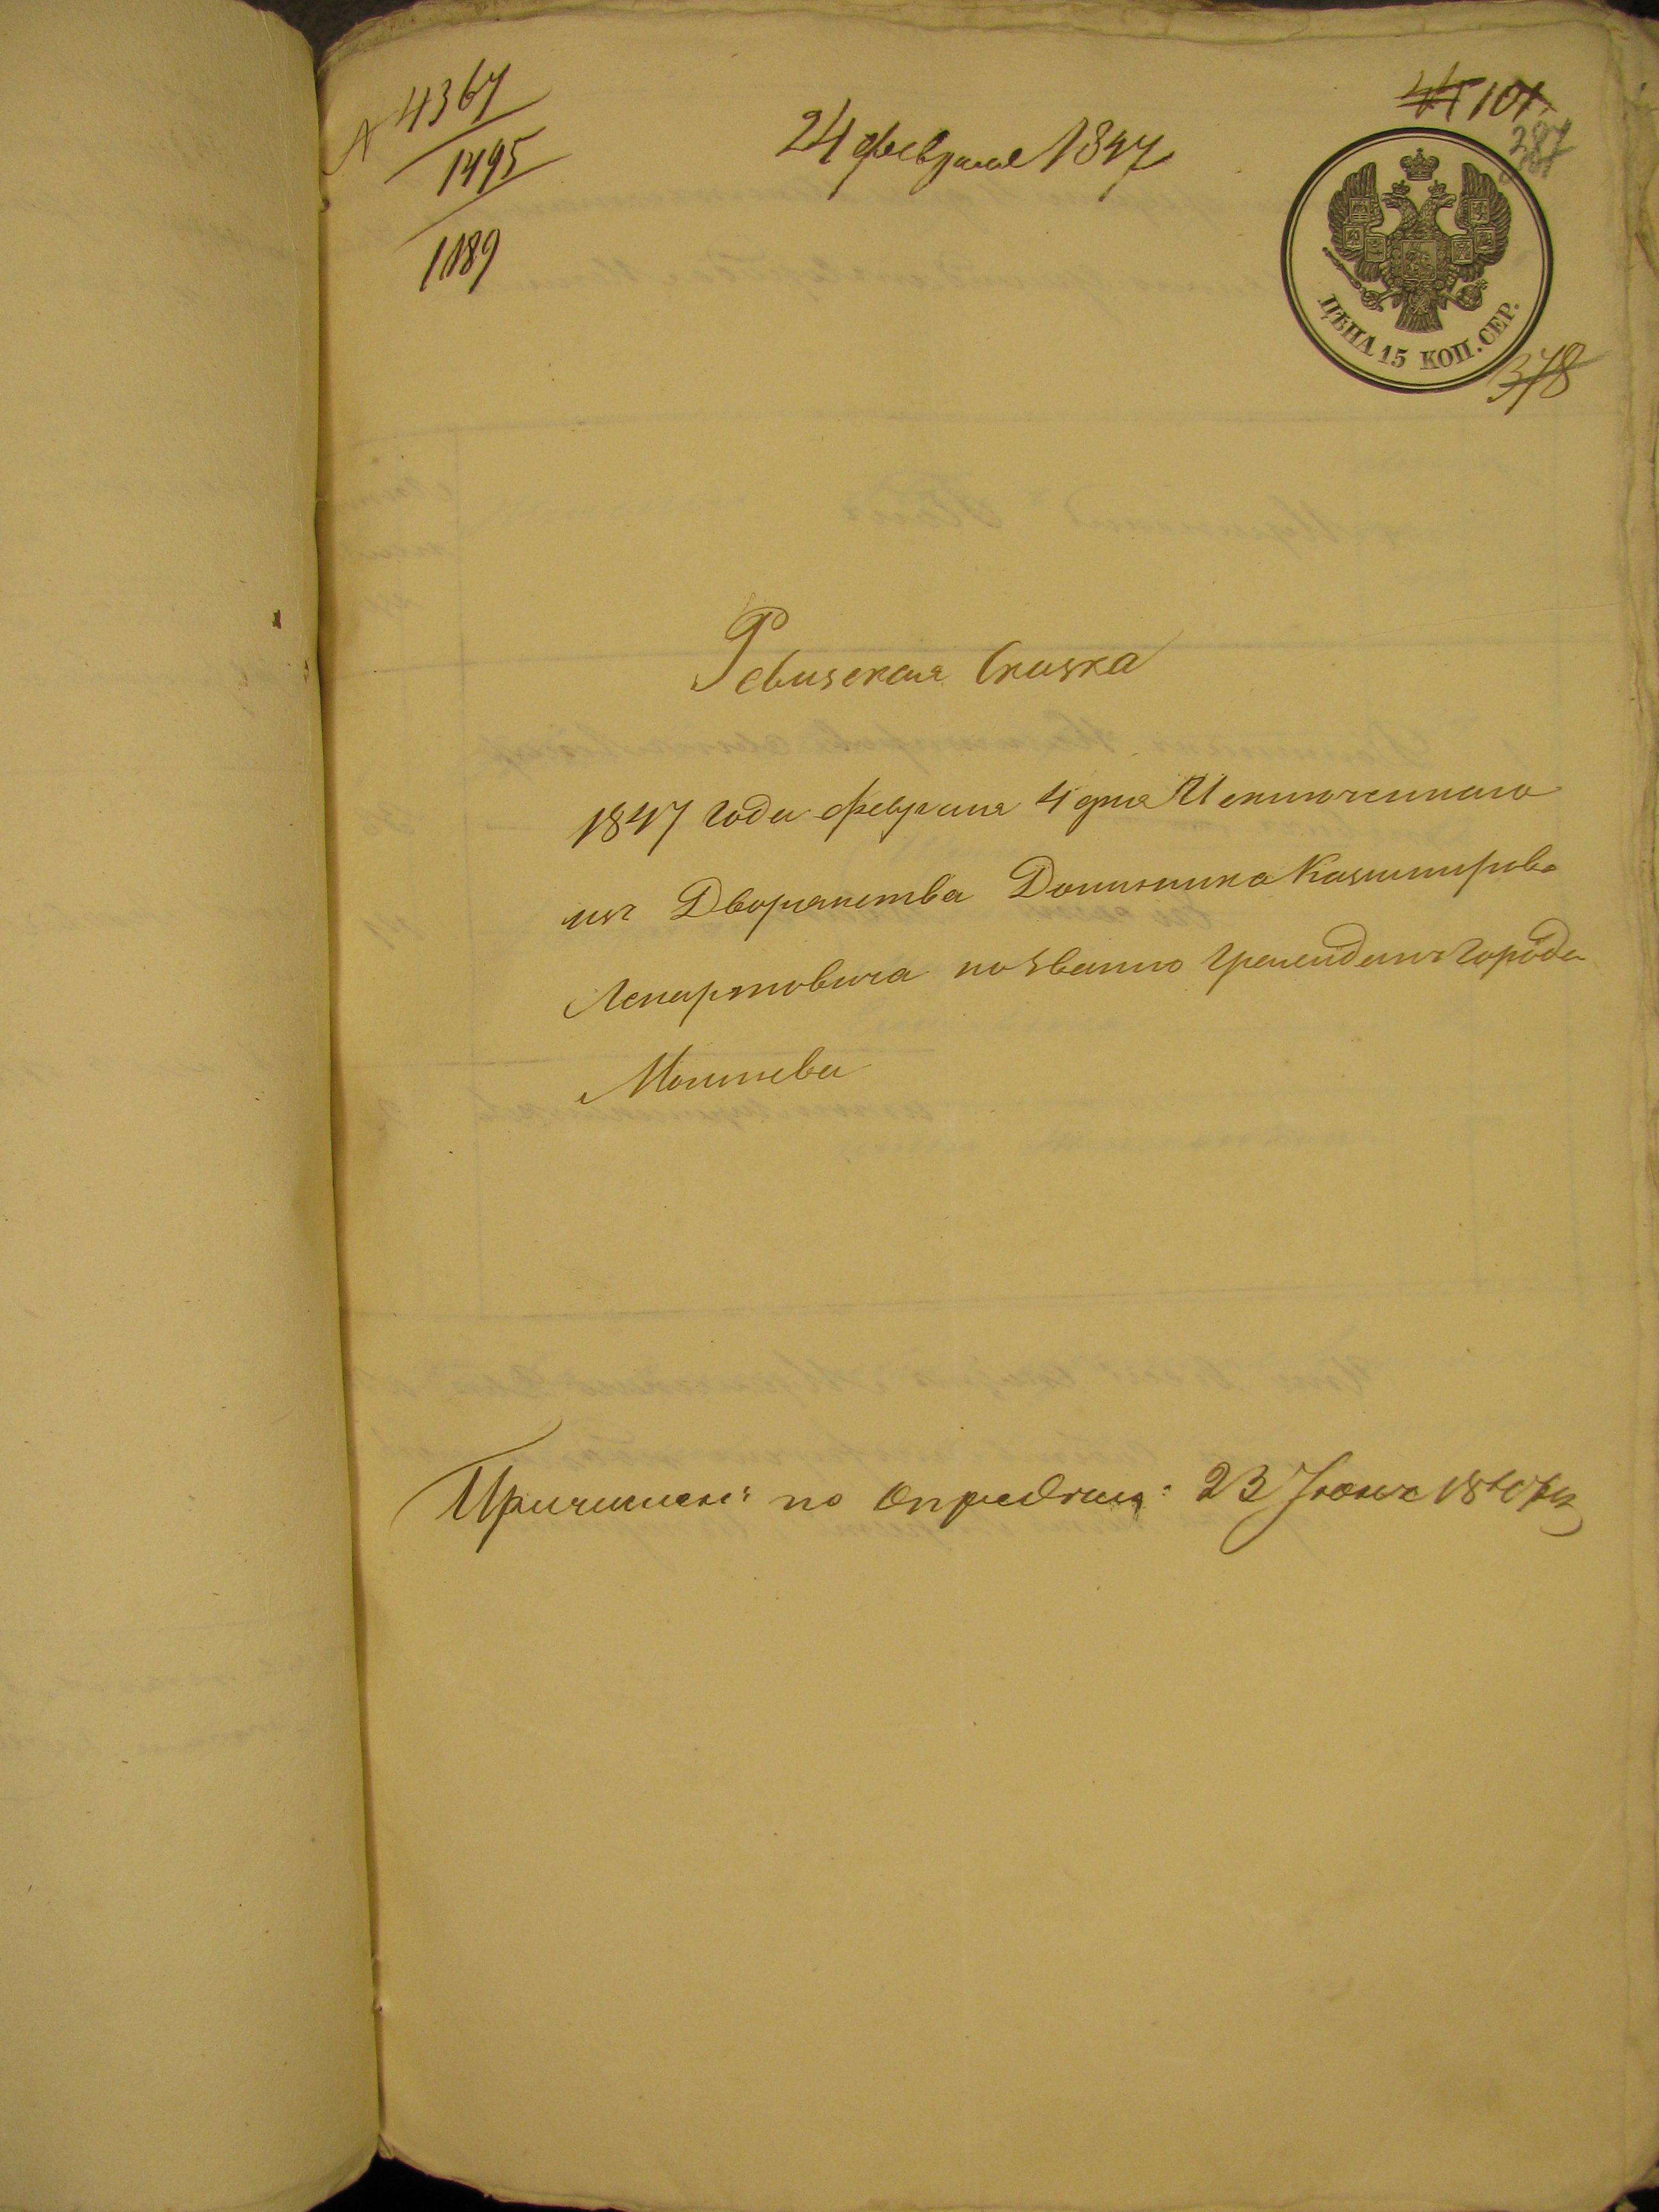 4367
1495
1189
24 февраля 1847
101
287
ЦѢНА 15 КОП. СЕР.
378
Ревизская Сказка
1847 года февраля 4 дня Исключеннаго
изъ Дворянства Доминика Казимирова
Ленартовича по званию Гражданъ города
Могилева
Причислен: по Определен: 23 Июня